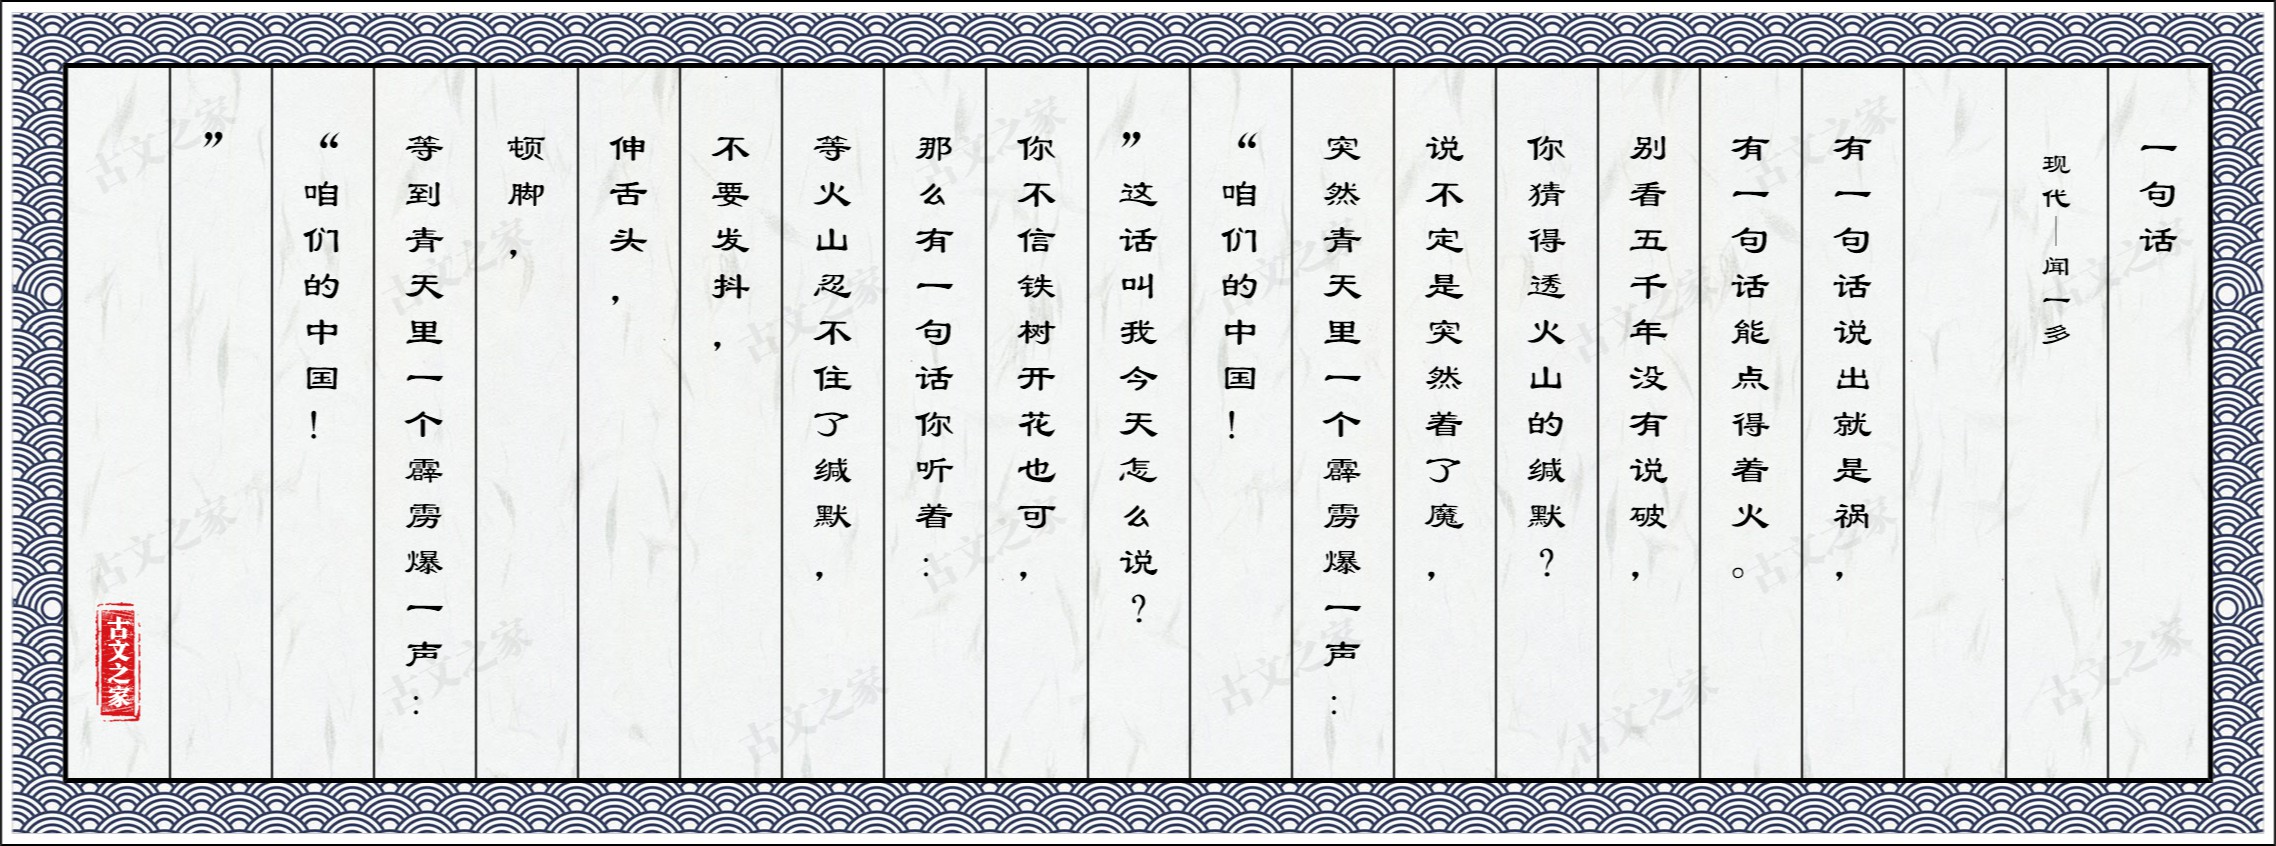 一句话
现代—闻一多
有一句话说出就是祸，
有一句话能点得着火。
别看五千年没有说破，
你猜得透火山的缄默？
说不定是突然着了魔，
突然青天里一个霹雳爆一声：
“咱们的中国！
”这话叫我今天怎么说？
你不信铁树开花也可，
那么有一句话你听着：
等火山忍不住了缄默，
不要发抖，
伸舌头，
顿脚，
等到青天里一个霹雳爆一声：
“咱们的中国！
”
古文之家